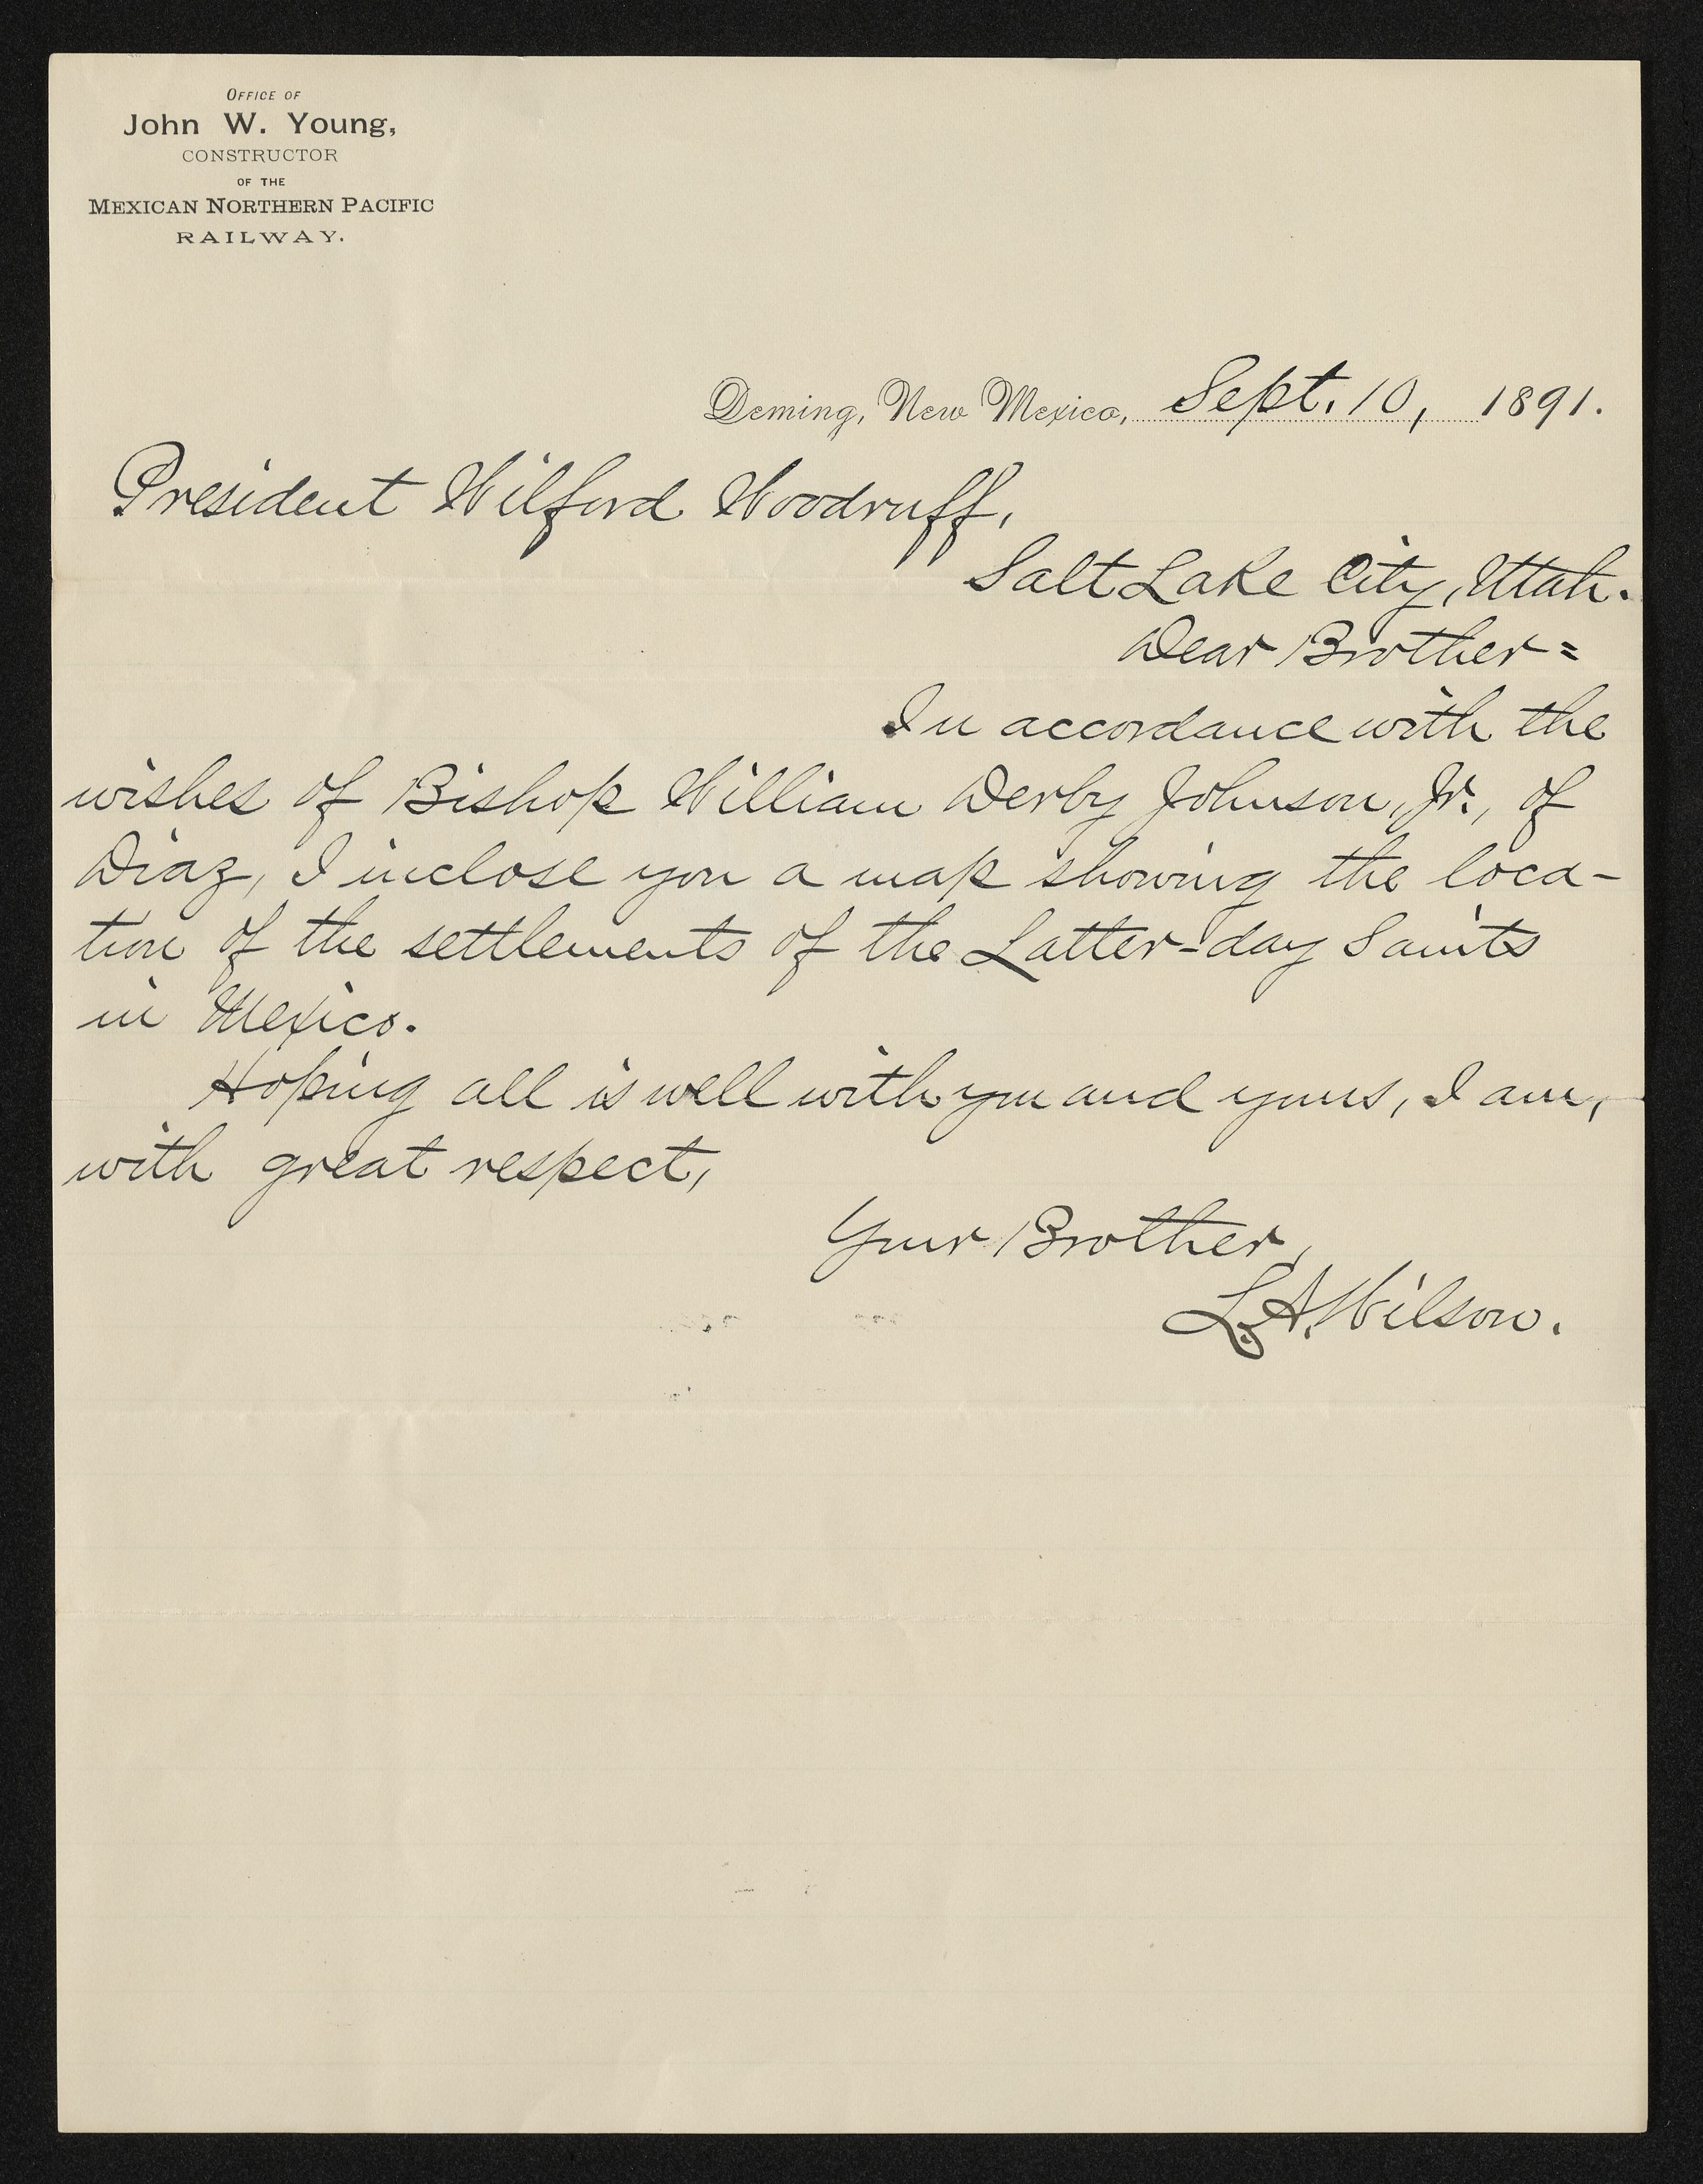 OFFICE OF
John W. Young,
CONSTRUCTOR
OF THE
MEXICAN NORTHERN PACIFIC
RAILWAY.
Deming, New Mexico, Sept. 10, 1891.
President Wilford Woodruff,
Salt Lake City, Utah.
Dear Brother=
In accordance with the
wishes of Bishop William Derby Johnson, Jr., of
Diaz, I inclose you a map showing the loca-
tion of the settlements of the Latter-day Saints
in Mexico.
Hoping all is well with you and yours, I am,
with great respect,
Your Brother,
L. A. Wilson.